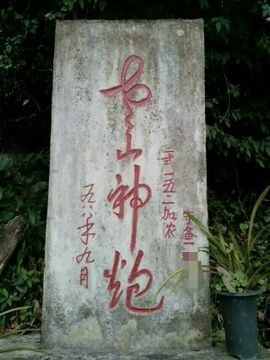 山神炮
一五二加农
守备一
五八年九月